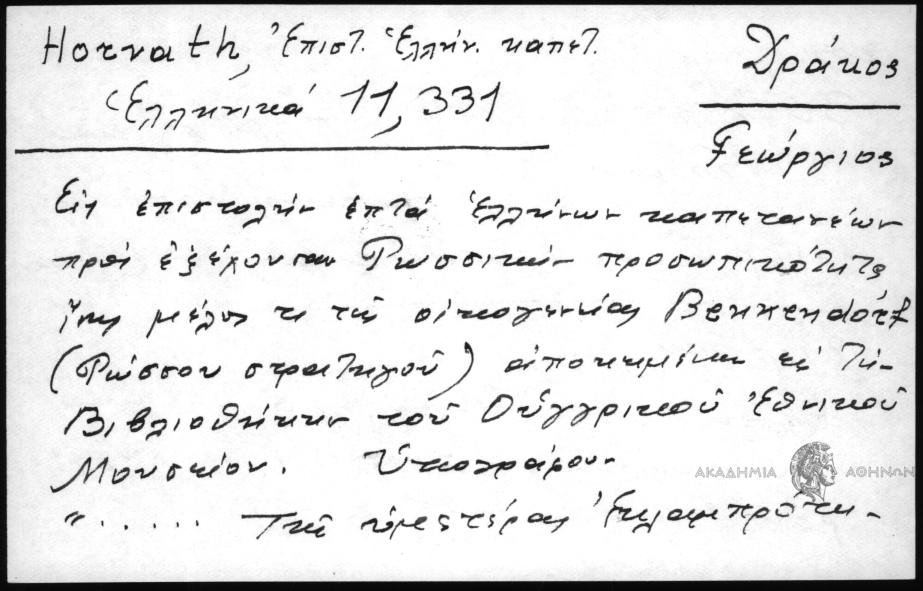 Horvath, Ἐπιστ. Ἑλλήν. καπετ.
Ἑλληνικά 11, 331
Δράκος
Γεώργιος
Εἰς ἐπιστολὴν ἑπτὰ Ἑλλήνων καπετανέων
πρὸς ἐξέχουσαν Ρωσσικὴν προσωπικότητα
μέλος τι τῆς οἰκογενείας Benkendorf
(Ρώσσου στρατηγοῦ) ἀποκειμένην εἰς τὴν
Βιβλιοθήκην τοῦ Οὑγγρικοῦ Ἐθνικοῦ
Μουσείου. Ὑπογράφουν
ΑΚΑΔΗΜΙΑ ΑΘΗΝΩΝ
"...... Τῆς ὑμετέρας Ἐκλαμπρότη-